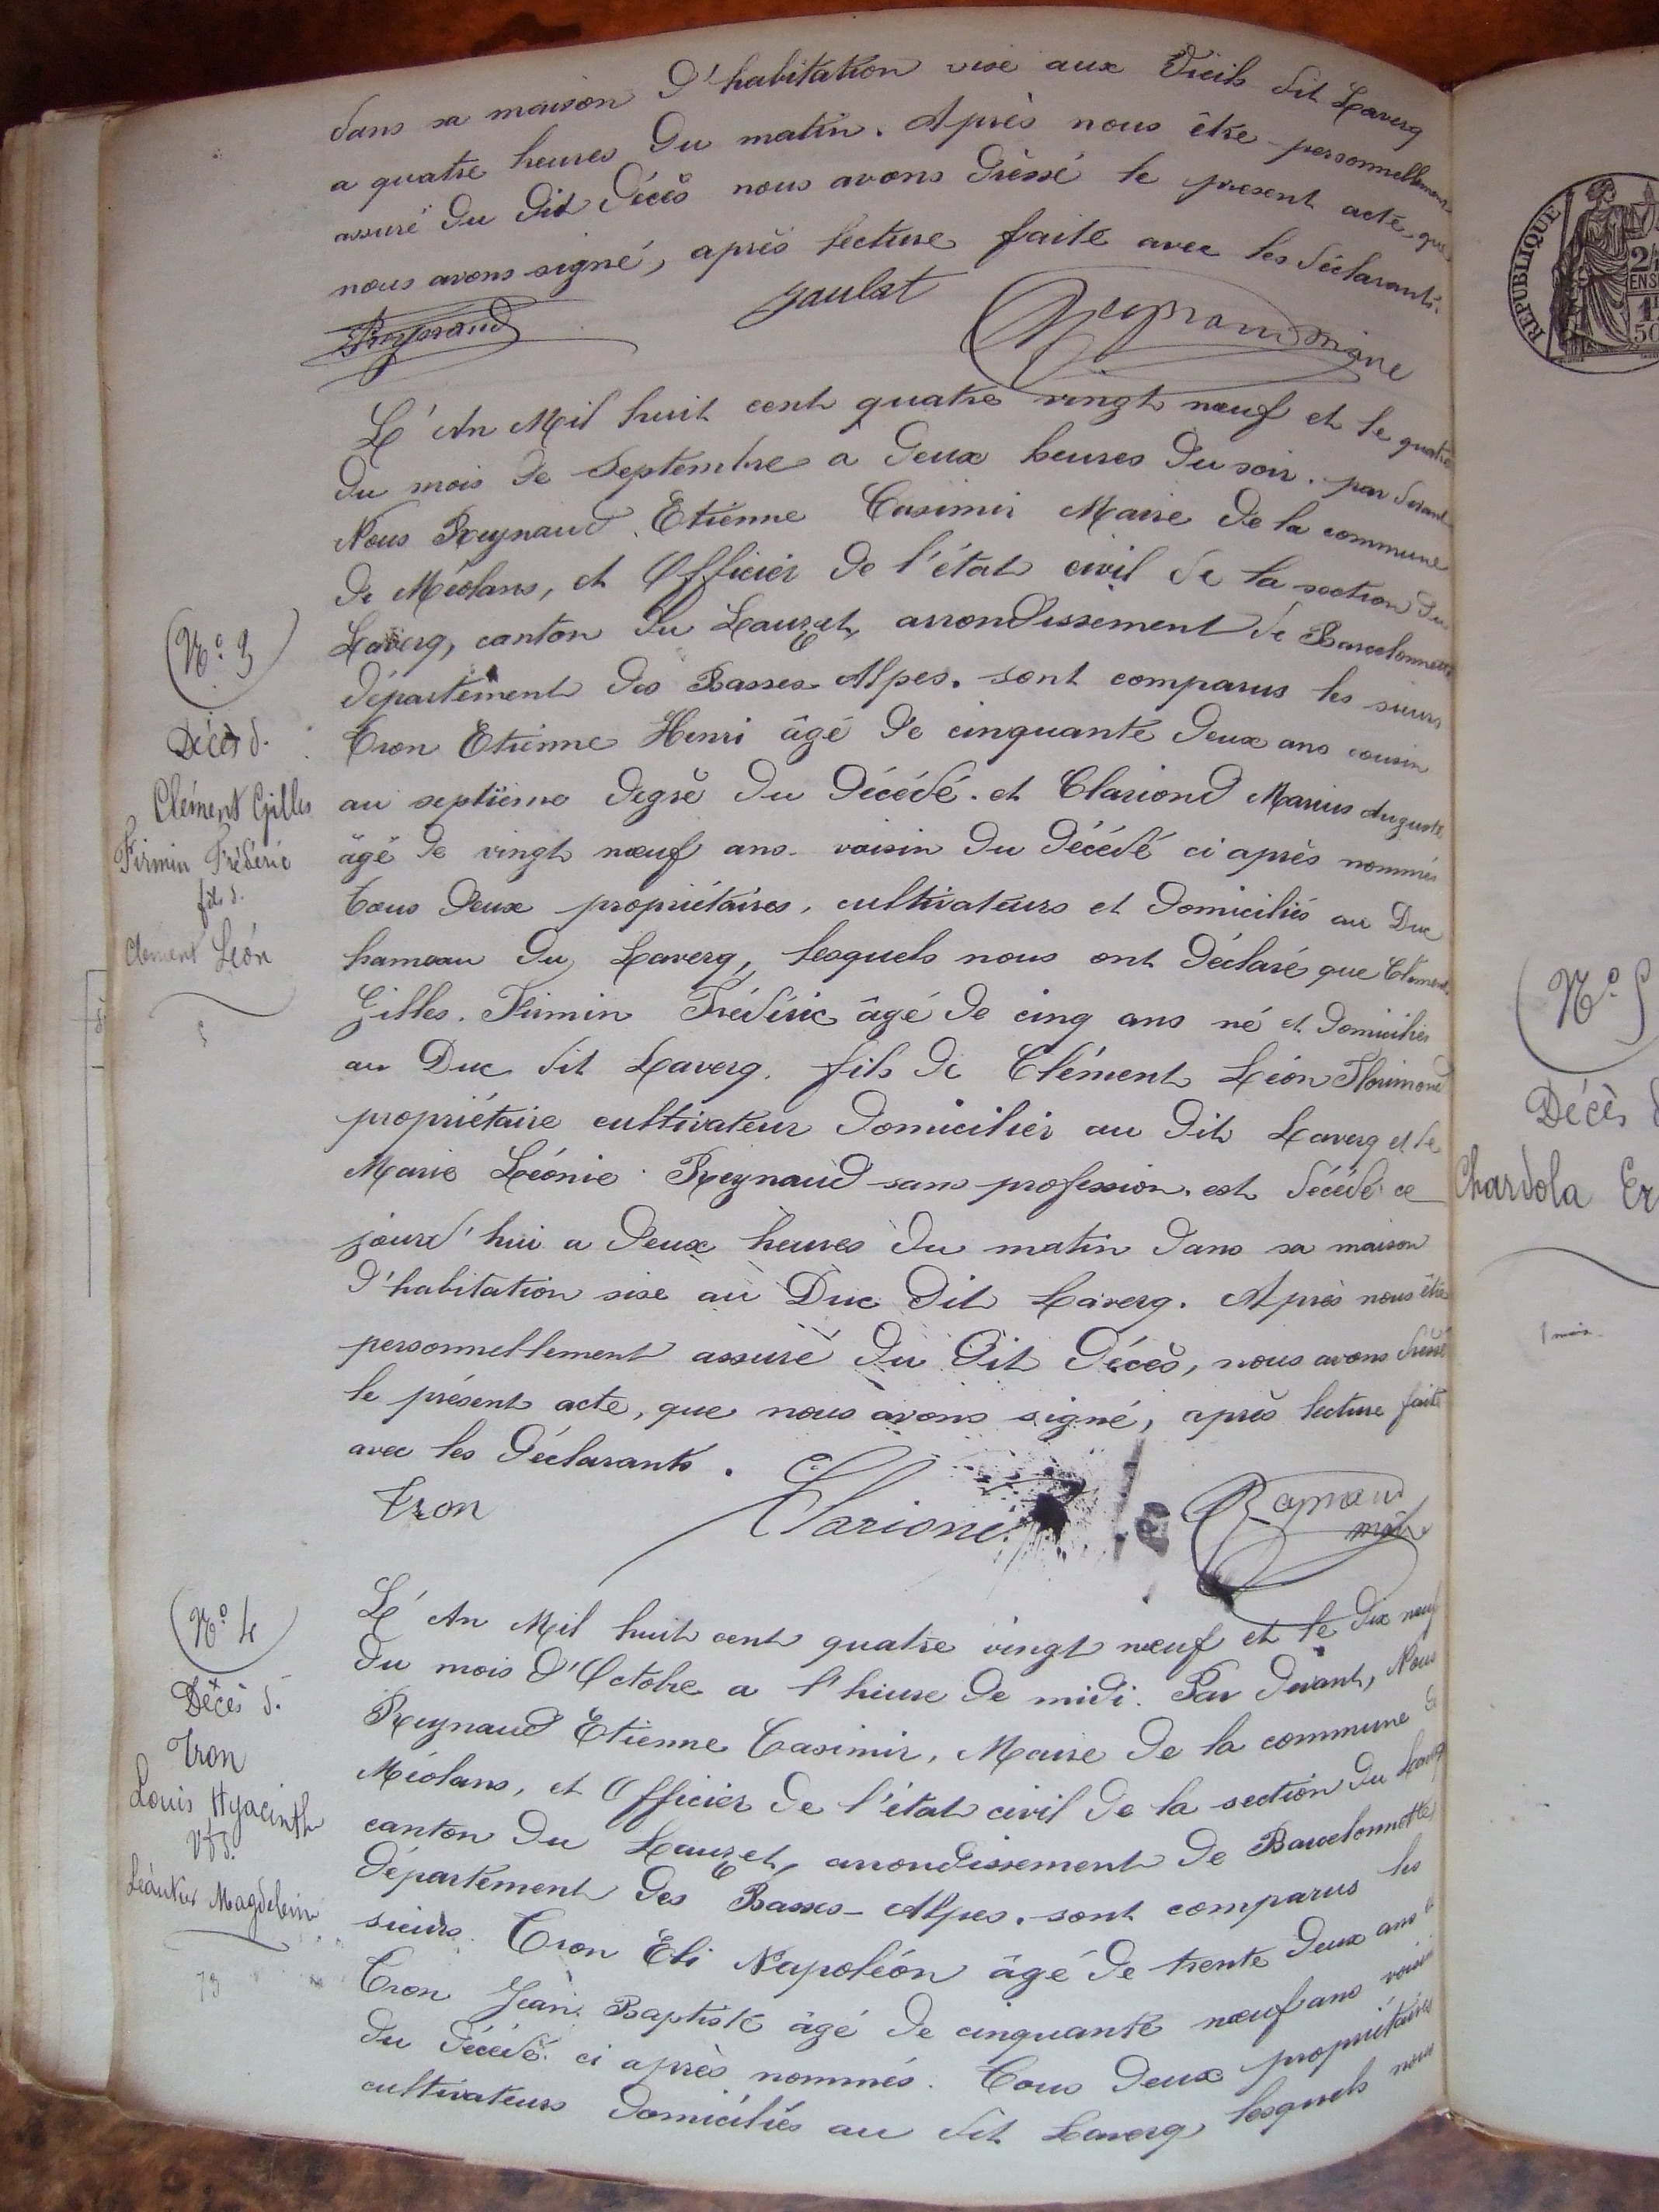 dans sa maison d'habitation sise aux Vieils dit Laverq
a quatre heures du matin. Après nous être personnellement
assuré du dit décès nous avons dréssé le present acte que
nous avons signé, après lecture faite avec les déclarants.
Reynaud Jaubert Reynaud maire
L'An Mil huit cent quatre vingt neuf et le quatre
du mois de Septembre a deux heures du soir. par devant
Nous Reynaud Etienne Casimir Maire de la commune
de Méolans, et Officier de l'état civil de la section du
Laverq, canton du Lauzet, arrondissement de Barcelonnette
département des Basses-Alpes. sont comparus les sieurs
Tron Etienne Henri âgé de cinquante deux ans cousin
au septième degré du décédé. et Clariond Marius Auguste
âgé de vingt neuf ans. voisin du décédé ci après nommés
tous deux propriétaires, cultivateurs et domiciliés au Duc
hameau du Laverq, lesquels nous ont déclaré que Clément
Gilles. Firmin Frédéric âgé de cinq ans né et domicilier
au Duc dit Laverq. fils de Clément Léon Florimond
propriétaire cultivateur domicilier au dit Laverq et de
Marie Léonie Reynaud sans profession. est décédé ce
jourd'hui a deux heures du matin dans sa maison
d'habitation sise au Duc dit Laverq. Après nous être
personnellement assuré du dit décès, nous avons dréssé
le présent acte, que nous avons signé, après lecture faite
avec les déclarants.
Tron Clariond Reynaud maire
N° 3
Décès d.
Clément Gilles
Firmin Fréderic
fils d.
Clément Léon
5
L'An Mil huit cent quatre vingt neuf et le dix neuf
du mois d'Octobre a l'heure de midi. Par devant, Nous
Reynaud Etienne Casimir, Maire de la commune de
Méolans, et Officier de l'état civil de la section du Laverq
canton du Lauzet, arrondissement de Barcelonnette
département des Basses-Alpes. sont comparus les
sieurs Tron Eli Napoléon âgé de trente deux ans
Tron Jean Baptiste âgé de cinquante neuf ans voisin
du décédé ci après nommés. Tous deux propriétaires
cultivateurs domiciliés au dit Laverq, lesquels nous
N° 4
Décès d.
Tron
Louis Hyacinth
Magdelein
73
REPUBLIQUE
N° 5
Décès d
Chardola Er
1 mois